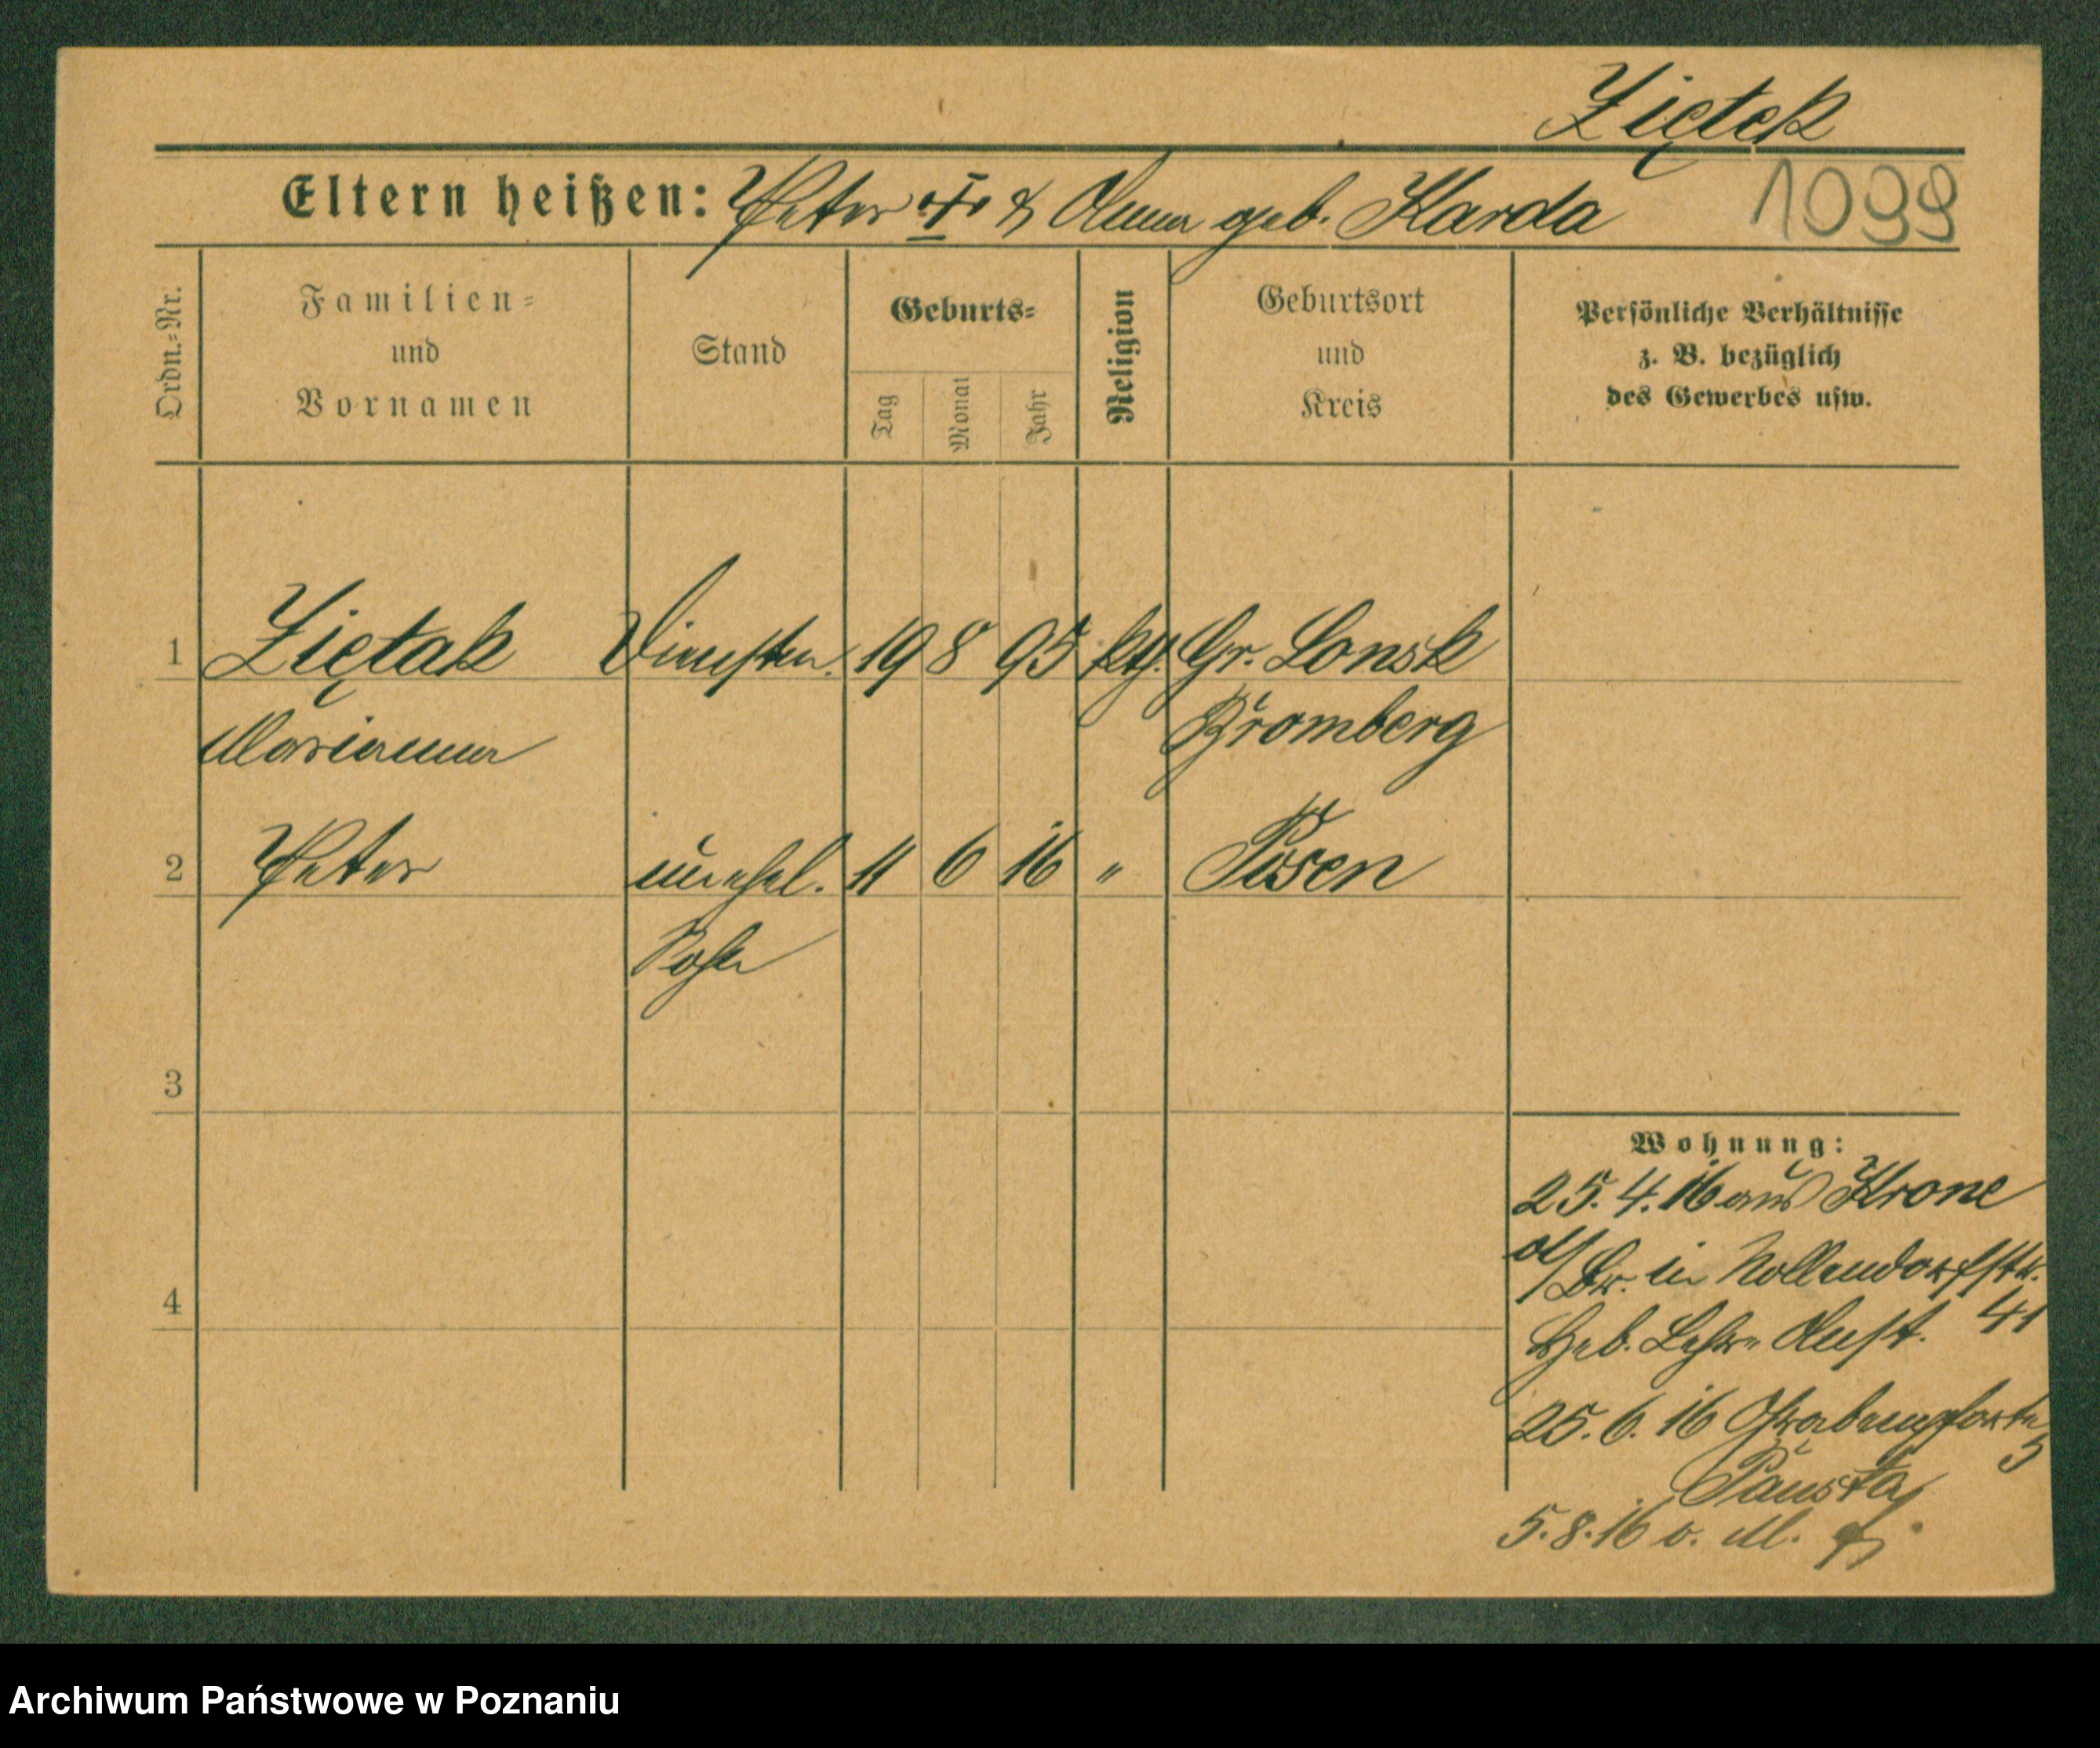 Ziętek
Eltern heißen: Peter † & Anna geb. Karda
1099
Ordn.-Nr.
Familien-
und
Vornamen
Stand
Geburts-
Tag
Monat
Jahr
Religion
Geburtsort
und
Kreis
Persönliche Verhältnisse
z. B. bezüglich
des Gewerbes usw.
1 Ziętak Dienstm. 19 8 95 kth. Gr. Lonsk
Marianna Bromberg
2 Peter unehel. 11 6 16 " Posen
Sohn
3
4
Wohnung:
25.4.16 aus Krone
a/Br. in Nollendorfstr.
Heb. Lehr-Anst. 41
25.6.16 Grabenpforte
3
5.8.16 v. M.
Archiwum Państwowe w Poznaniu